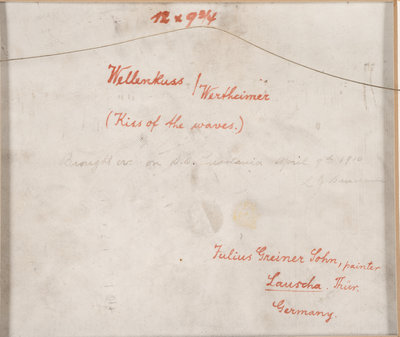 12 x 9 3/4
Wellenkuss / Wertheimer
(Kiss of the waves.)
Brought over on S.S. Lusitania April 9th 1910
Julius Greiner Sohn, painter
Lauscha. Thür.
Germany.